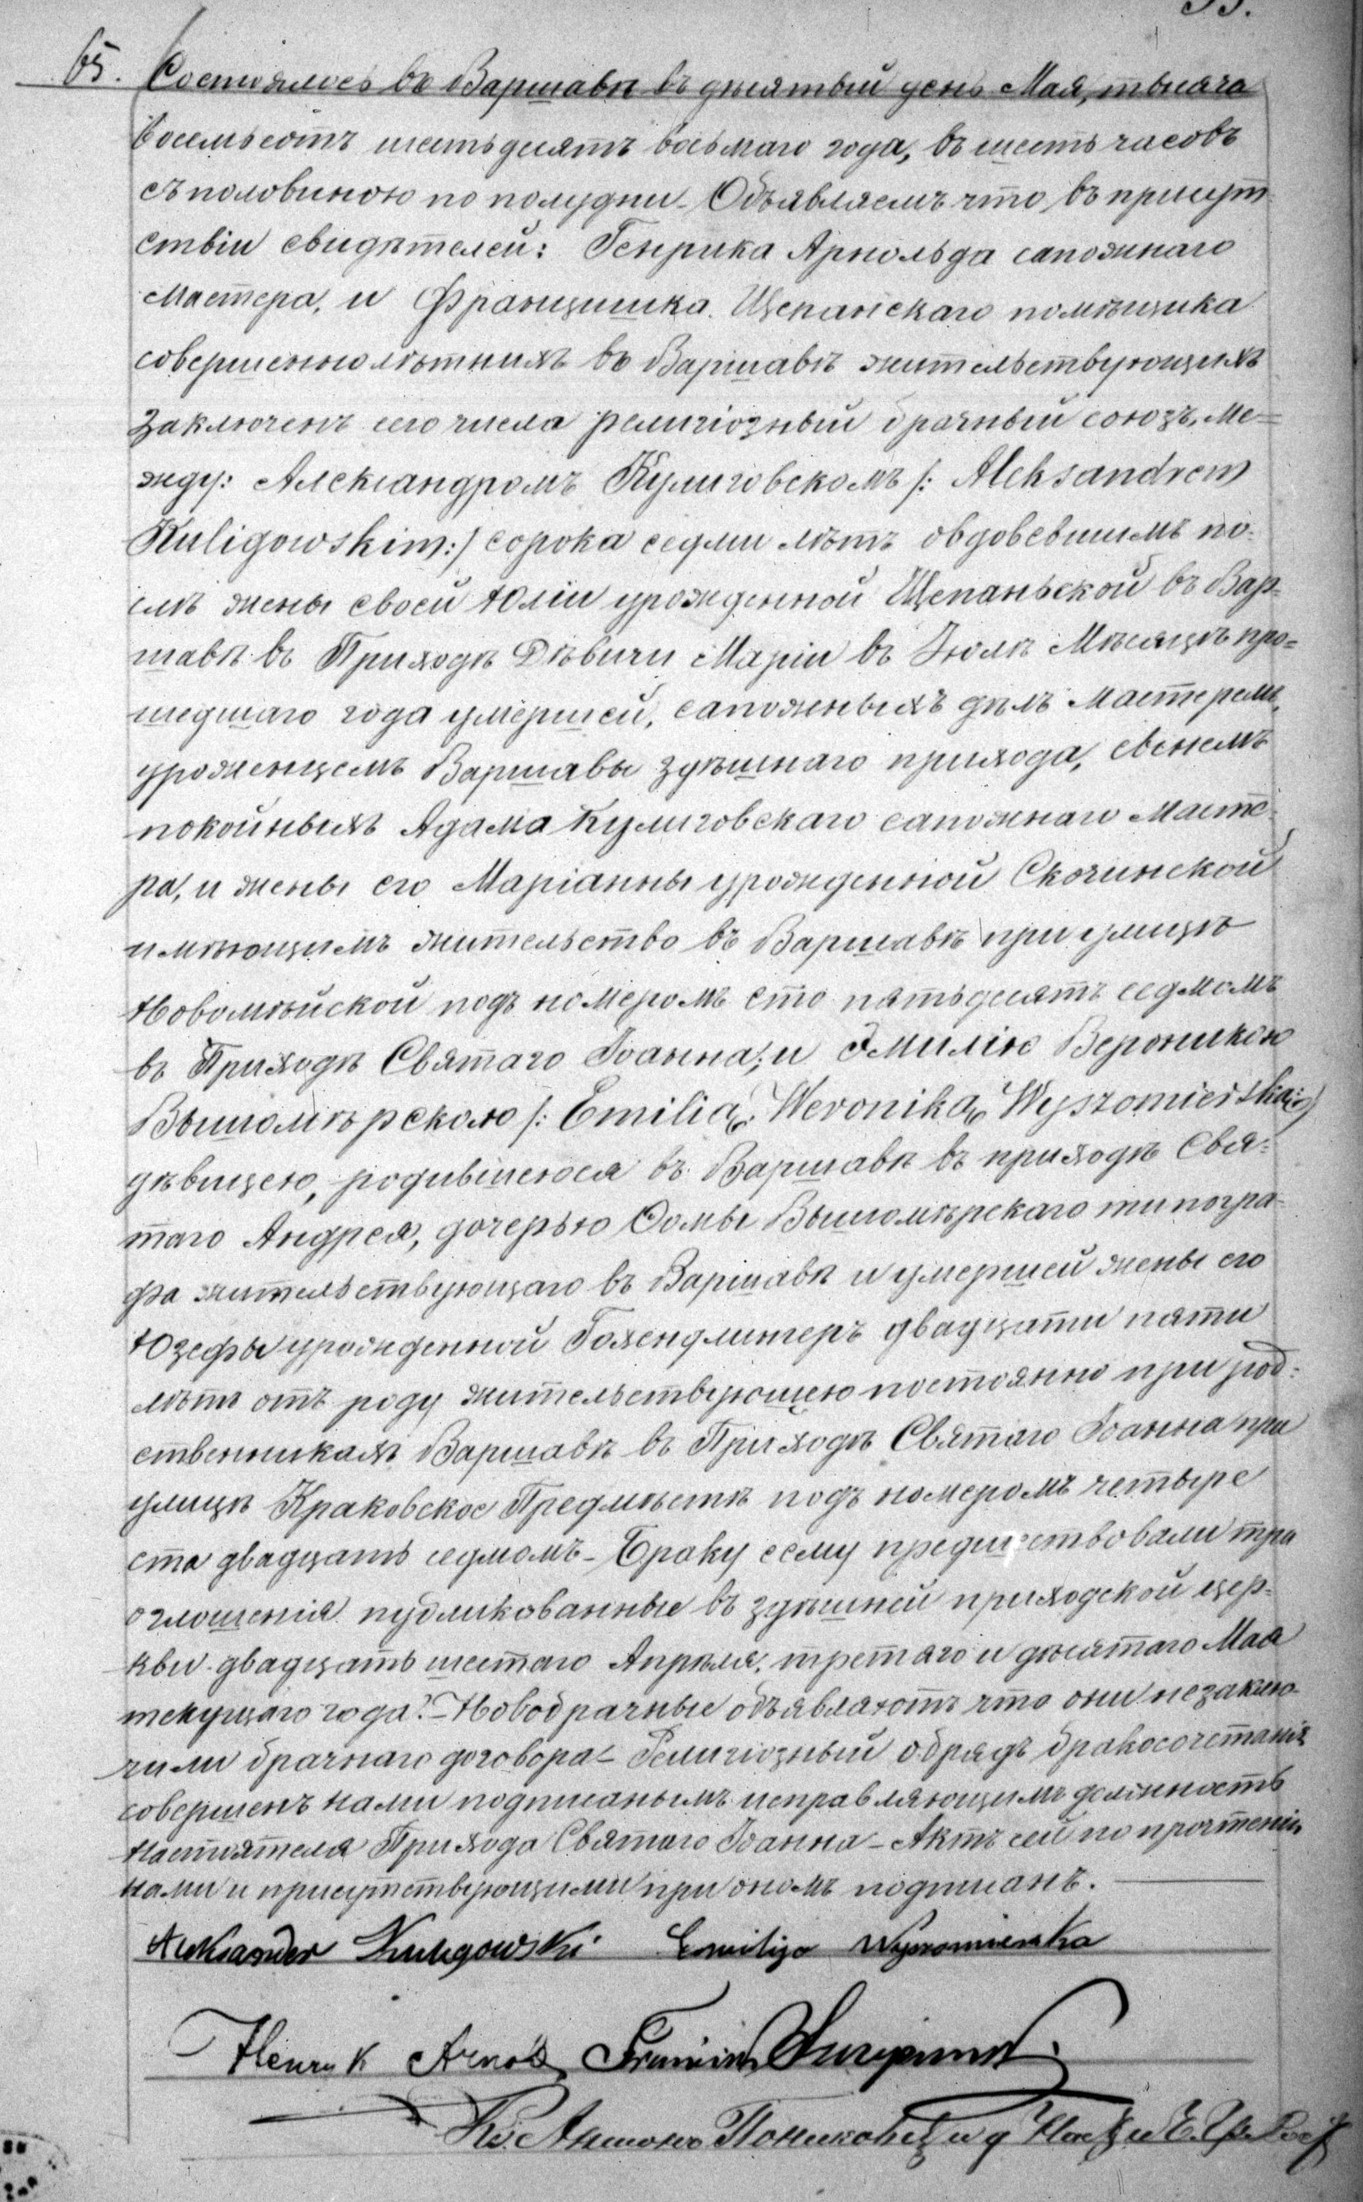 65. Состоялось въ Варшавѣ въ десятый день Мая, тысяча
восемьсотъ шестьдесятъ восьмаго года, въ шесть часовъ
съ половиною по полудни – Объявляемъ что въ присут-
ствіи свидѣтелей: Генрика Арнольда сапожнаго
мастера, и Францишка Щепанскаго помѣщика
совершеннолѣтнихъ въ Варшавѣ жительствующихъ
заключенъ сего числа религіозный брачный союзъ, ме=
жду: Александромъ Кулиговскомъ /: Aleksandrem
Kuligowskim :/ сорока седми лѣтъ овдовевшимъ по-
слѣ жены своей Юліи урожденной Щепаньской въ Вар-
шавѣ въ Приходѣ Дѣвичи Маріи въ Іюлѣ Мѣсяцѣ про=
шедшаго года умершей, сапожныхъ дѣлъ мастеромъ,
уроженцемъ Варшавы здѣшнаго прихода, сыномъ
покойныхъ Адама Кулиговскаго сапожнаго масте-
ра, и жены его Маріанны урожденной Скочинской
имѣющимъ жительство въ Варшавѣ при улицѣ
Новомѣйской подъ номеромъ сто пятьдесятъ седмомъ
въ Приходѣ Святаго Іоанна; и Эмилію Вероникою
Вышомѣрскою /: Emilią Weroniką Wyszomierską :/
дѣвицею, родившеюся въ Варшавѣ въ приходѣ Свя-
таго Андрея, дочерью Ѳомы Вышомѣрскаго типогра-
фа жительствующаго въ Варшавѣ и умершей жены его
Юзефы урожденной двадцати пяти
лѣтъ отъ роду жительствующею постоянно при род-
ственникахъ Варшавѣ въ Приходѣ Святаго Іоанна при
улицѣ Краковское Предмѣстѣ подъ номеромъ четыре
ста двадцать седмомъ – Браку сему предшествовали три
оглошенія публикованные въ здѣшней приходской цер-
кви двадцать шестаго Апрѣля, третяго и десятаго Мая
текущаго года. – Новобрачные объявляютъ что они незаклю-
чили брачнаго договора – Религіозный обрядъ бракосочетанія
совершенъ нами подписанымъ исправляющимъ должность
Настоятеля Прихода Святаго Іоанна – Актъ сей по прочтеніи
нами и присутствующими при ономъ подписанъ. —
Aleksander Kuligowski Emilija Wyszomierska
Henryk Arnold
Кс. Антонъ